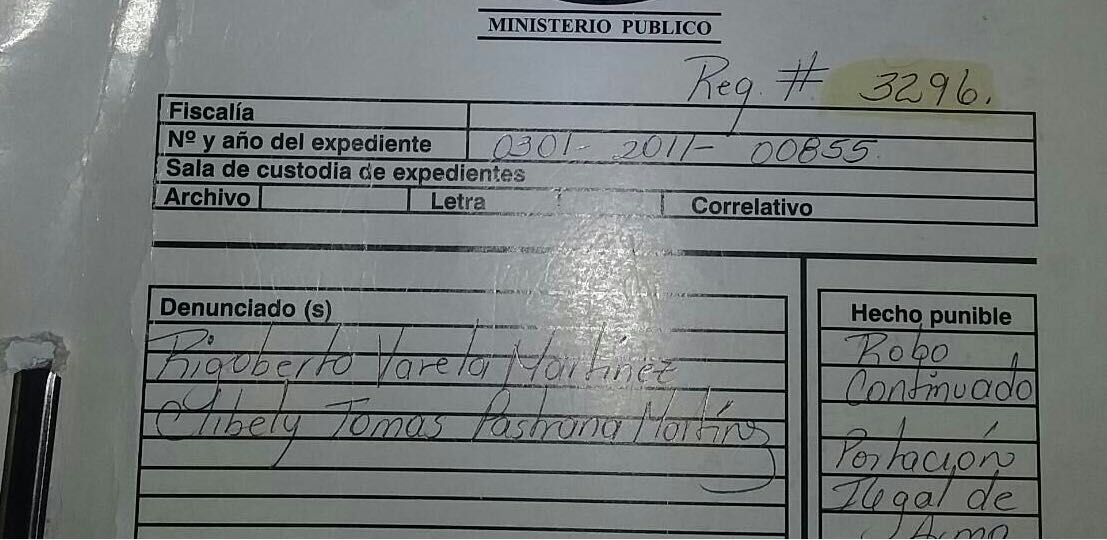 MINISTERIO PUBLICO
Reg. # 3296.
Fiscalía
Nº y año del expediente 0301- 2011- 00855
Sala de custodia de expedientes
Archivo Letra Correlativo
Denunciado (s)
Rigoberto Varela Martinez
Tomas Pastrana
Hecho punible
Robo
Continuado
Portación
Ilegal de
Arma